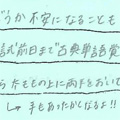 うか不安になることも
試前日まで古典単語覚
たもその上に両手をおいて
し→手もあったかくなるよ!!